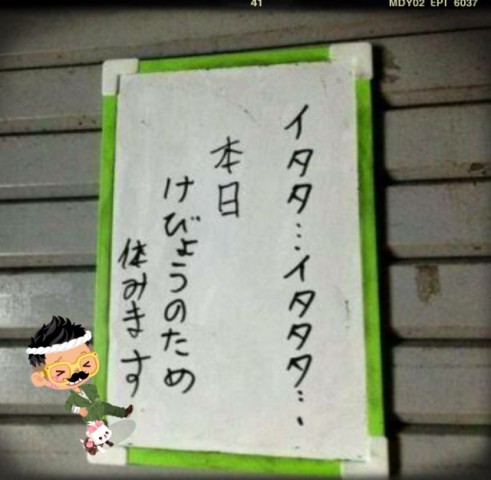 41
MDY02 EPT 6037
イタタ…イタタタ…、
本日
けびょうのため
休みます